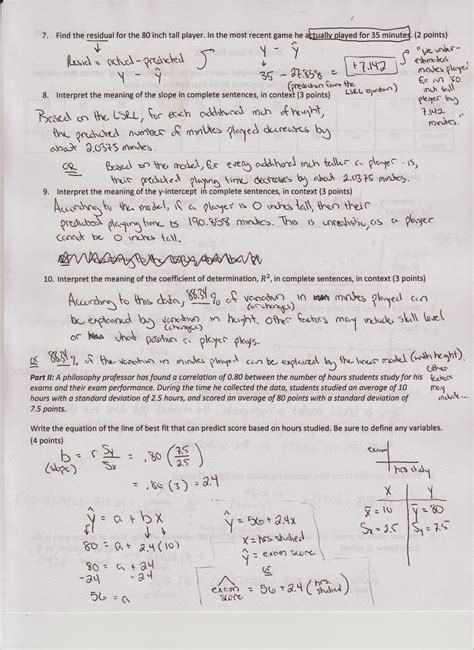 7. Find the residual for the 80 inch tall player. In the most recent game he actually played for 35 minutes. (2 points)
Resid = actual - predicted
y - ŷ
y - ŷ
35 - 27.858 = +7.142
(prediction from the LSRL equation)
"we under-
estimated
minutes played
for an 80
inch tall
player by
7.142
minutes."
8. Interpret the meaning of the slope in complete sentences, in context (3 points)
Based on the LSRL, for each additional inch of height,
the predicted number of minutes played decreases by
about 2.0375 minutes.
OR Based on the model, for every additional inch taller a player is,
their predicted playing time decreases by about 2.0375 minutes.
9. Interpret the meaning of the y-intercept in complete sentences, in context (3 points)
According to the model, if a player is 0 inches tall, then their
predicted playing time is 190.858 minutes. This is unrealistic, as a player
cannot be 0 inches tall.
10. Interpret the meaning of the coefficient of determination, R², in complete sentences, in context (3 points)
According to this data, 88.34% of variation in minutes played can
(or changes)
be explained by variation in height. Other factors may include skill level
(changes)
or what position a player plays.
OR 88.34% of the variation in minutes played can be explained by the linear model (with height).
Other
factors
may
include...
Part II: A philosophy professor has found a correlation of 0.80 between the number of hours students study for his
exams and their exam performance. During the time he collected the data, students studied an average of 10
hours with a standard deviation of 2.5 hours, and scored an average of 80 points with a standard deviation of
7.5 points.
Write the equation of the line of best fit that can predict score based on hours studied. Be sure to define any variables.
(4 points)
b = r Sy/Sx = .80 (7.5/2.5)
(slope)
= .80 (3) = 2.4
exam
hrs study
X Y
x̄ = 10 ȳ = 80
Sx = 2.5 Sy = 7.5
ŷ = a + bx
80 = a + 2.4(10)
80 = a + 24
-24 -24
56 = a
ŷ = 56 + 2.4x
x = hrs studied
ŷ = exam score
or
exam score = 56 + 2.4 (hrs. studied)